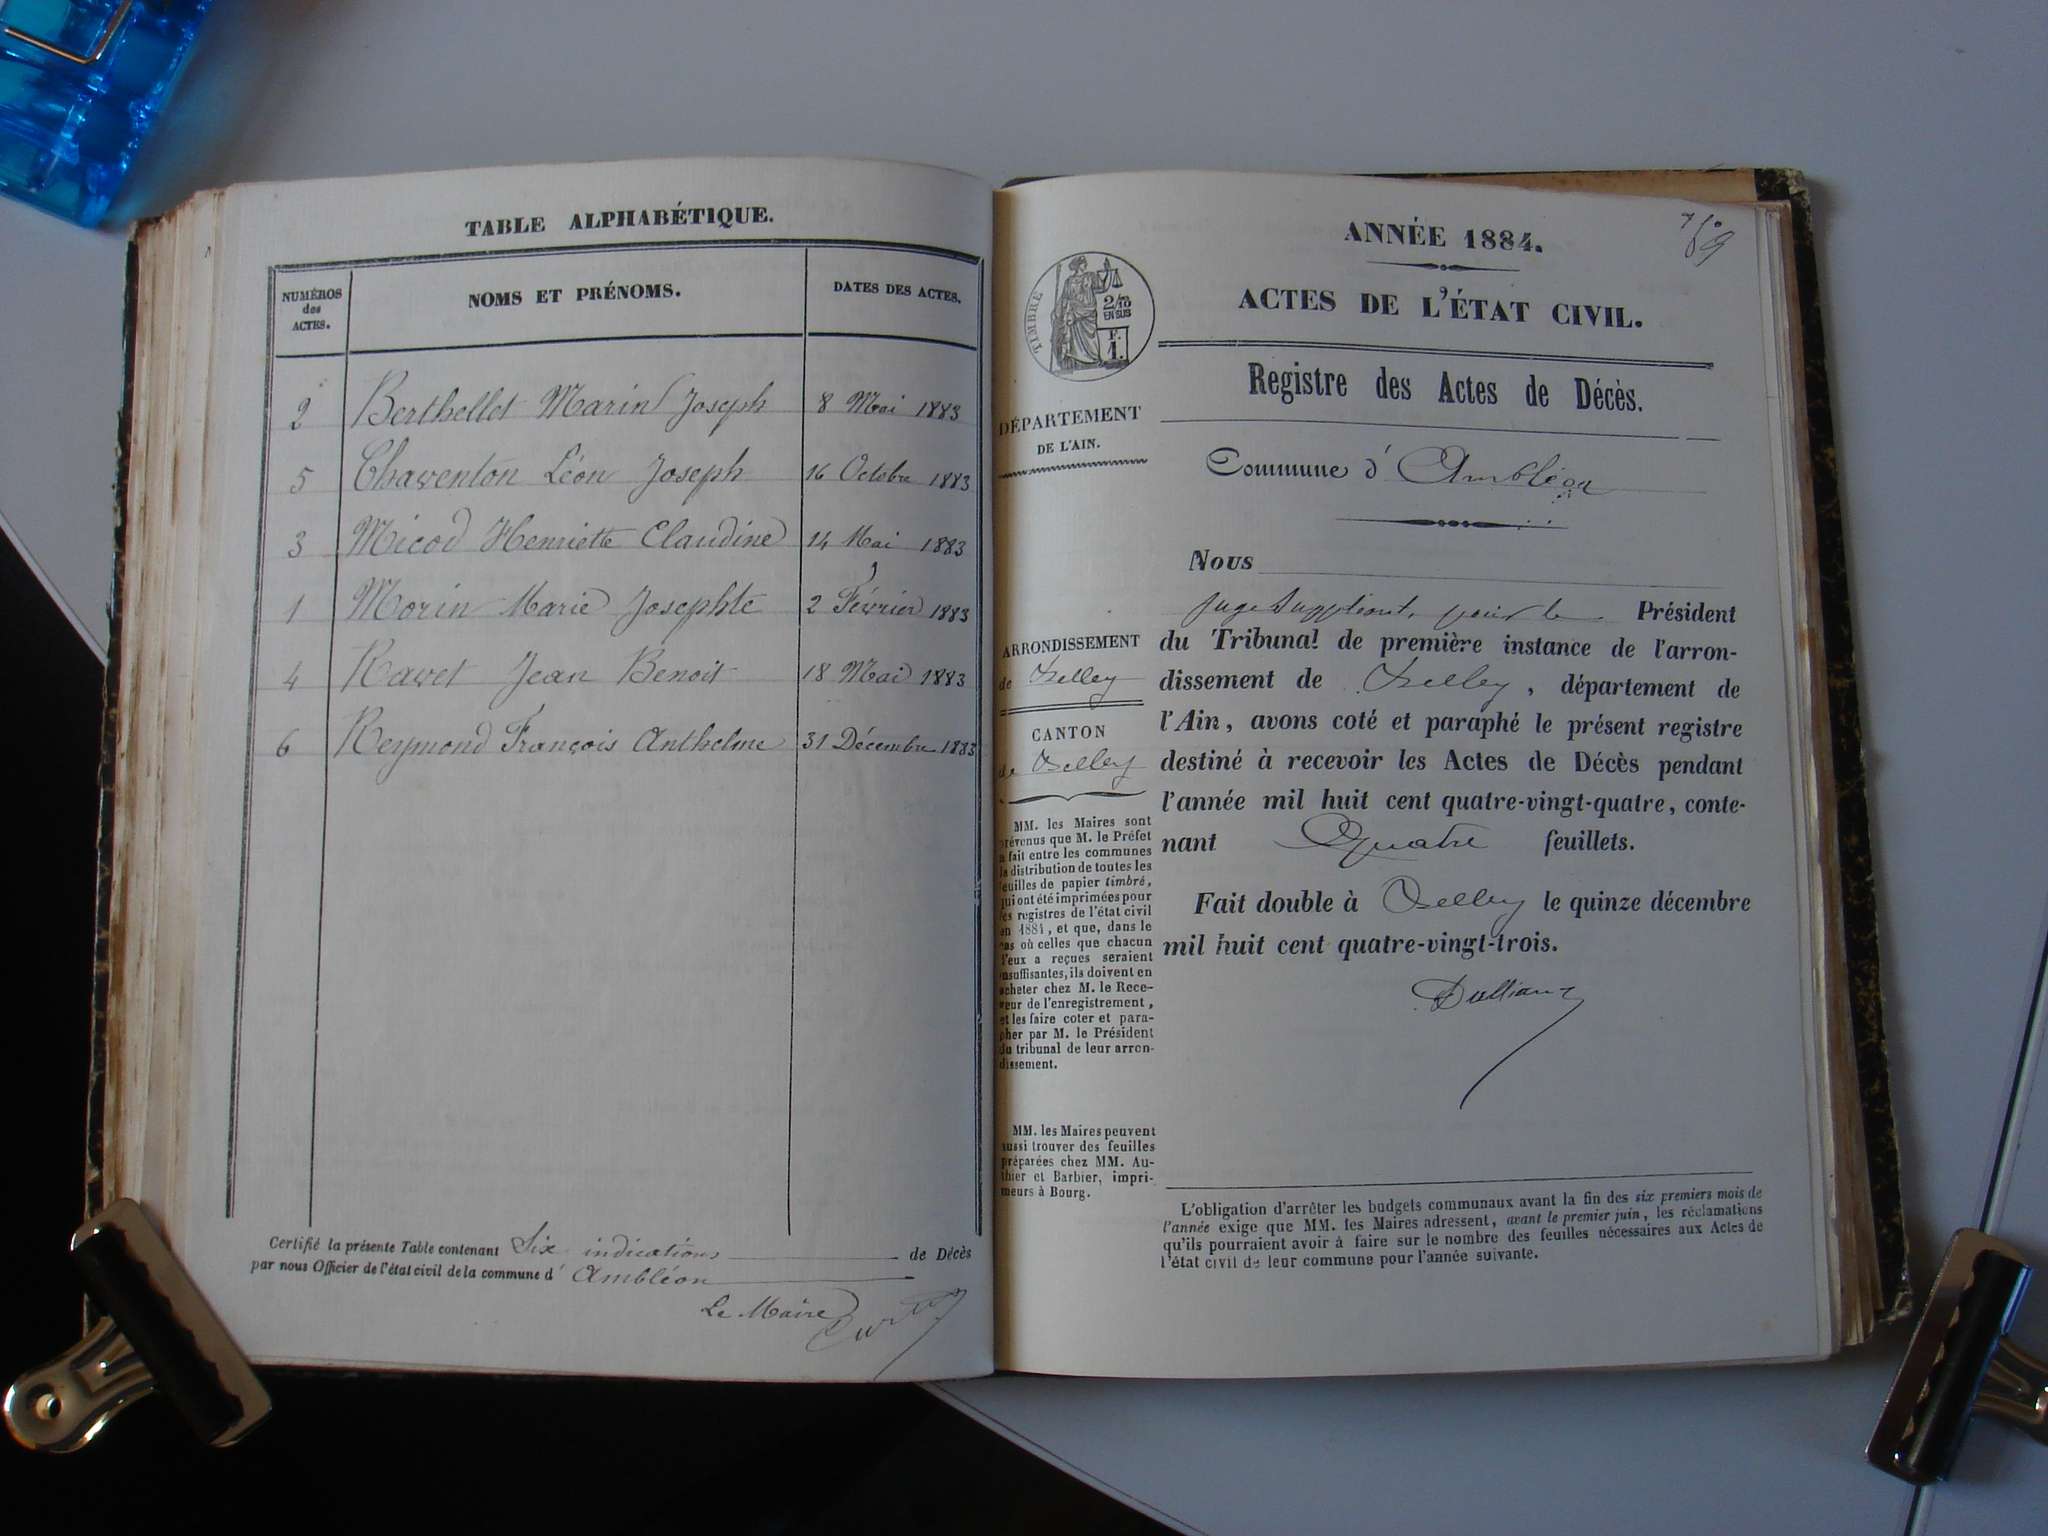 TABLE ALPHABÉTIQUE.
NUMÉROS des ACTES.
NOMS ET PRÉNOMS.
DATES DES ACTES.
2 Berthellet Marin Joseph 8 Mai 1883
5 Chaventon Léon Joseph 16 Octobre 1883
3 Micod Henriette Claudine 14 Mai 1883
1 Morin Marie Josephte 2 Février 1883
4 Ravet Jean Benoit 18 Mai 1883
6 Reymond François Anthelme 31 Décembre 1883
Certifié la présente Table contenant Six indications de Décès
par nous Officier de l'état civil de la commune d' Ambléon
Le Maire
ANNÉE 1884.
ACTES DE L'ÉTAT CIVIL.
TIMBRE
2/10
EN SUS
F.
1.
Registre des Actes de Décès.
DÉPARTEMENT
DE L'AIN.
Commune d' Ambléon
Nous
juge suppléant, pour le Président
du Tribunal de première instance de l'arron-
dissement de Belley, département de
l'Ain, avons coté et paraphé le présent registre
destiné à recevoir les Actes de Décès pendant
l'année mil huit cent quatre-vingt-quatre, conte-
nant Quatre feuillets.
Fait double à Belley le quinze décembre
mil huit cent quatre-vingt-trois.
ARRONDISSEMENT
de Belley
CANTON
de Belley
MM. les Maires sont
prévenus que M. le Préfet
a fait entre les communes
la distribution de toutes les
feuilles de papier timbré,
qui ont été imprimées pour
les registres de l'état civil
en 1884, et que, dans le
cas où celles que chacun
d'eux a reçues seraient
insuffisantes, ils doivent en
acheter chez M. le Rece-
veur de l'enregistrement,
et les faire coter et para-
pher par M. le Président
du tribunal de leur arron-
dissement.
MM. les Maires peuvent
aussi trouver des feuilles
préparées chez MM. Au-
thier et Barbier, impri-
meurs à Bourg.
L'obligation d'arrêter les budgets communaux avant la fin des six premiers mois de
l'année exige que MM. les Maires adressent, avant le premier juin, les réclamations
qu'ils pourraient avoir à faire sur le nombre des feuilles nécessaires aux Actes de
l'état civil de leur commune pour l'année suivante.